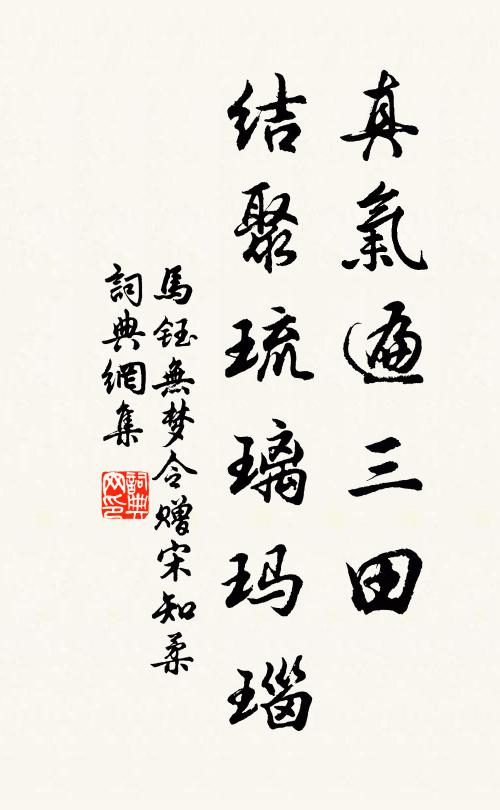 真氣遍三田
结聚琉璃玛瑙
馬鈺無梦令赠宋知柔
詞典網集
詞典网印